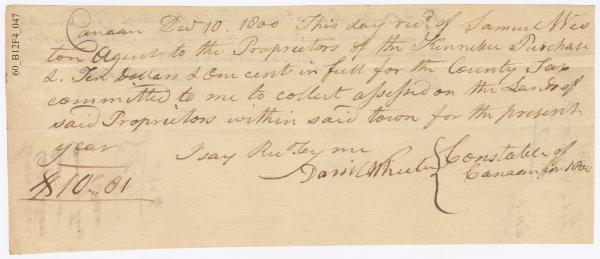 60_B12F4_047
Canaan Decr 10. 1800 This day recd of Samuel Wes
ton Agent to the Proprietors of the Kennebec Purchase
Ten Dollars & One cent in full for the County Tax
committed to me to collect assessed on the Lands of
said Proprietors within said town for the present
year I say Recd by me
$10,,01 Wheeler { Constable of
Canaan for 1800